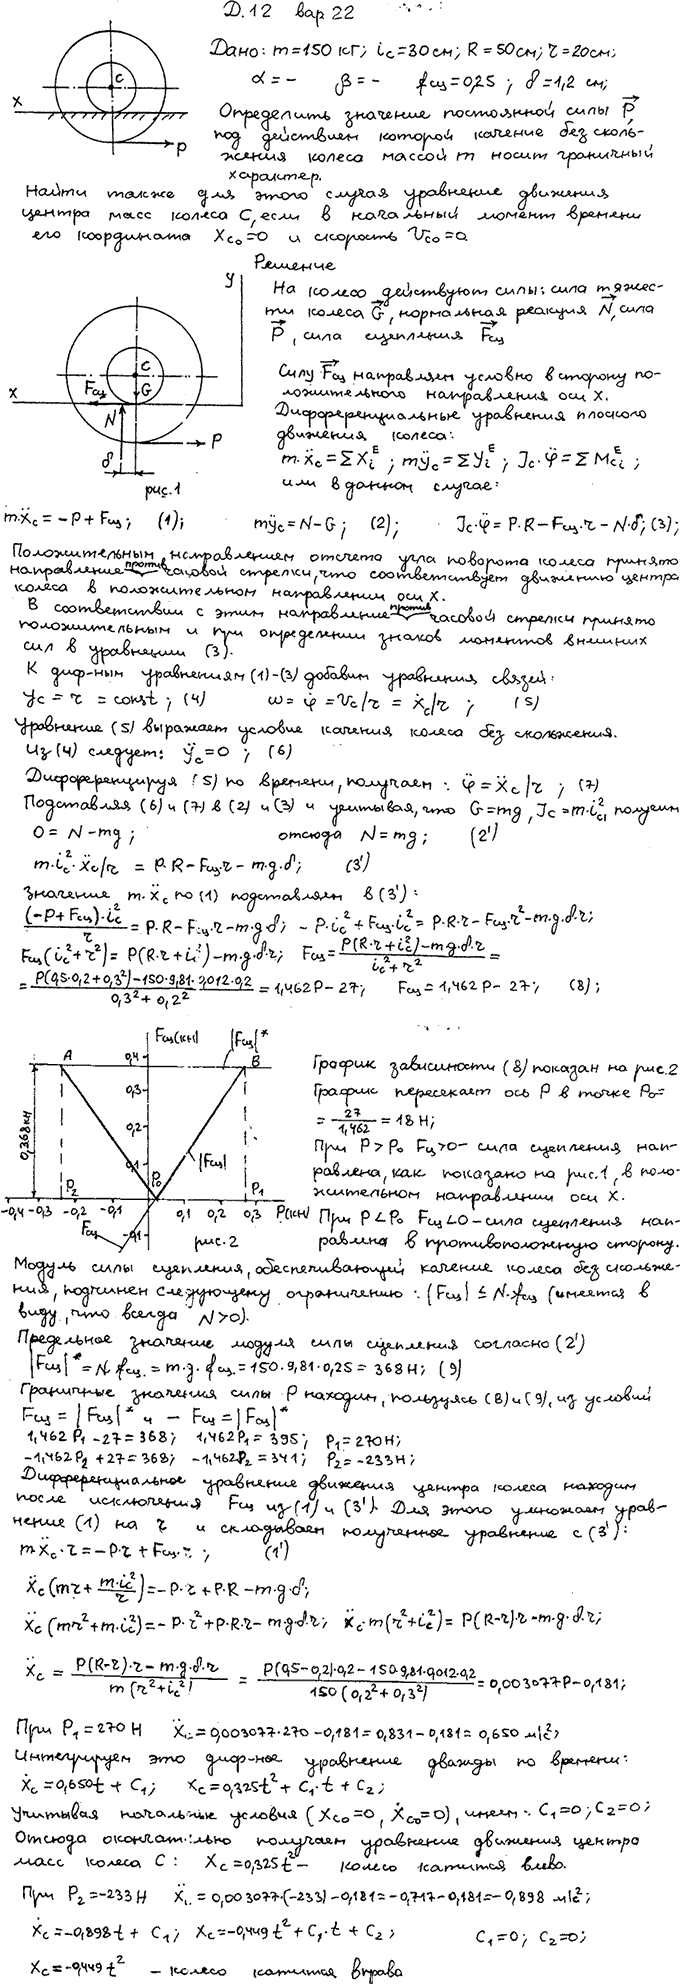 Д.12 вар 22
Дано: m=150 кг; i_c=30см; R=50см; r=20см;
α=– β=– f_сц=0,25; δ=1,2 см;
Определить значение постоянной силы P⃗,
под действием которой качение без сколь-
жения колеса массой m носит граничный
характер.
Найти также для этого случая уравнение движения
центра масс колеса С, если в начальный момент времени
его координата X_C0=0 и скорость V_C0=0.
C
X
P
Решение
На колесо действуют силы: сила тяжес-
ти колеса G⃗, нормальная реакция N⃗, сила
P⃗, сила сцепления F⃗сц
Силу F⃗сц направляем условно в сторону по-
ложительного направления оси X.
Дифференциальные уравнения плоского
движения колеса:
m·ẍ_c=ΣX_i^E; mÿ_c=ΣY_i^E; J_c·φ̈=ΣM_ci^E;
или в данном случае:
y
C
Fсц
G
X
N
P
δ
рис.1
m·ẍ_c=-P+Fсц; (1); mÿ_c=N-G; (2); J_c·φ̈=P·R-Fсц·r-N·δ; (3);
Положительным направлением отсчета угла поворота колеса принято
направление против часовой стрелки, что соответствует движению центра
колеса в положительном направлении оси X.
В соответствии с этим направление против часовой стрелки принято
положительным и при определении знаков моментов внешних
сил в уравнении (3).
К диф-ным уравнениям (1)-(3) добавим уравнения связей:
y_c=r=const; (4) ω=φ̇=V_c/r=ẋ_c/r; (5)
Уравнение (5) выражает условие качения колеса без скольжения.
Из (4) следует: ÿ_c=0; (6)
Дифференцируя (5) по времени, получаем: φ̈=ẍ_c/r; (7)
Подставляя (6) и (7) в (2) и (3) и учитывая, что G=mg, J_c=m·i_c², получим
0=N-mg; отсюда N=mg; (2')
m·i_c²·ẍ_c/r = P·R-Fсц·r-m·g·δ; (3')
Значение m·ẍ_c по (1) подставляем в (3'):
(-P+Fсц)·i_c²/r=P·R-Fсц·r-m·g·δ; -P·i_c²+Fсц·i_c²=P·R·r-Fсц·r²-m·g·δ·r;
Fсц(i_c²+r²)=P(R·r+i_c²)-m·g·δ·r; Fсц=(P(R·r+i_c²)-m·g·δ·r)/(i_c²+r²)=
=(P(0,5·0,2+0,3²)-150·9,81·0,012·0,2)/(0,3²+0,2²)=1,462P-27; Fсц=1,462P-27; (8);
Fсц(кН)
|Fсц|*
A
B
0,4
0,3
0,2
0,1
0,368 кН
|Fсц|
P₂
P₀
P₁
-0,4 -0,3 -0,2 -0,1 0,1 0,2 0,3 P(кН)
-0,1
Fсц
рис.2
График зависимости (8) показан на рис.2
График пересекает ось P в точке P₀=
=27/1,462=18Н;
При P>P₀ Fсц>0– сила сцепления нап-
равлена, как показано на рис.1, в поло-
жительном направлении оси X.
При P<P₀ Fсц<0– сила сцепления нап-
равлена в противоположную сторону.
Модуль силы сцепления, обеспечивающий качение колеса без скольже-
ния, подчинен следующему ограничению: |Fсц|≤N·fсц (имеется в
виду, что всегда N>0).
Предельное значение модуля силы сцепления согласно (2')
|Fсц|*=N·fсц=m·g·fсц=150·9,81·0,25=368Н; (9)
Граничные значения силы P находим, пользуясь (8) и (9), из условий
Fсц=|Fсц|* и -Fсц=|Fсц|*
1,462P₁-27=368; 1,462P₁=395; P₁=270Н;
-1,462P₂+27=368; -1,462P₂=341; P₂=-233Н;
Дифференциальное уравнение движения центра колеса находим
после исключения Fсц из (1) и (3'). Для этого умножаем урав-
нение (1) на r и складываем полученное уравнение с (3'):
mẍ_c·r=-P·r+Fсц·r; (1')
ẍ_c(mr+m·i_c²/r)=-P·r+P·R-m·g·δ;
ẍ_c(mr²+m·i_c²)=-P·r²+P·R·r-m·g·δ·r; ẍ_c·m(r²+i_c²)=P(R-r)·r-m·g·δ·r;
ẍ_c=(P(R-r)·r-m·g·δ·r)/(m(r²+i_c²))=(P(0,5-0,2)·0,2-150·9,81·0,012·0,2)/(150(0,2²+0,3²))=0,003077P-0,181;
При P₁=270Н ẍ_c=0,003077·270-0,181=0,831-0,181=0,650 м/с²;
Интегрируем это диф-ное уравнение дважды по времени:
ẋ_c=0,650t+C₁; x_c=0,325t²+C₁·t+C₂;
Учитывая начальные условия (X_C0=0, Ẋ_C0=0), имеем: C₁=0; C₂=0;
Отсюда окончательно получаем уравнение движения центра
масс колеса С: X_c=0,325t²– колесо катится влево.
При P₂=-233Н ẍ_c=0,003077·(-233)-0,181=-0,717-0,181=-0,898 м/с²;
ẋ_c=-0,898t+C₁; x_c=-0,449t²+C₁·t+C₂; C₁=0; C₂=0;
X_c=-0,449t² – колесо катится вправо